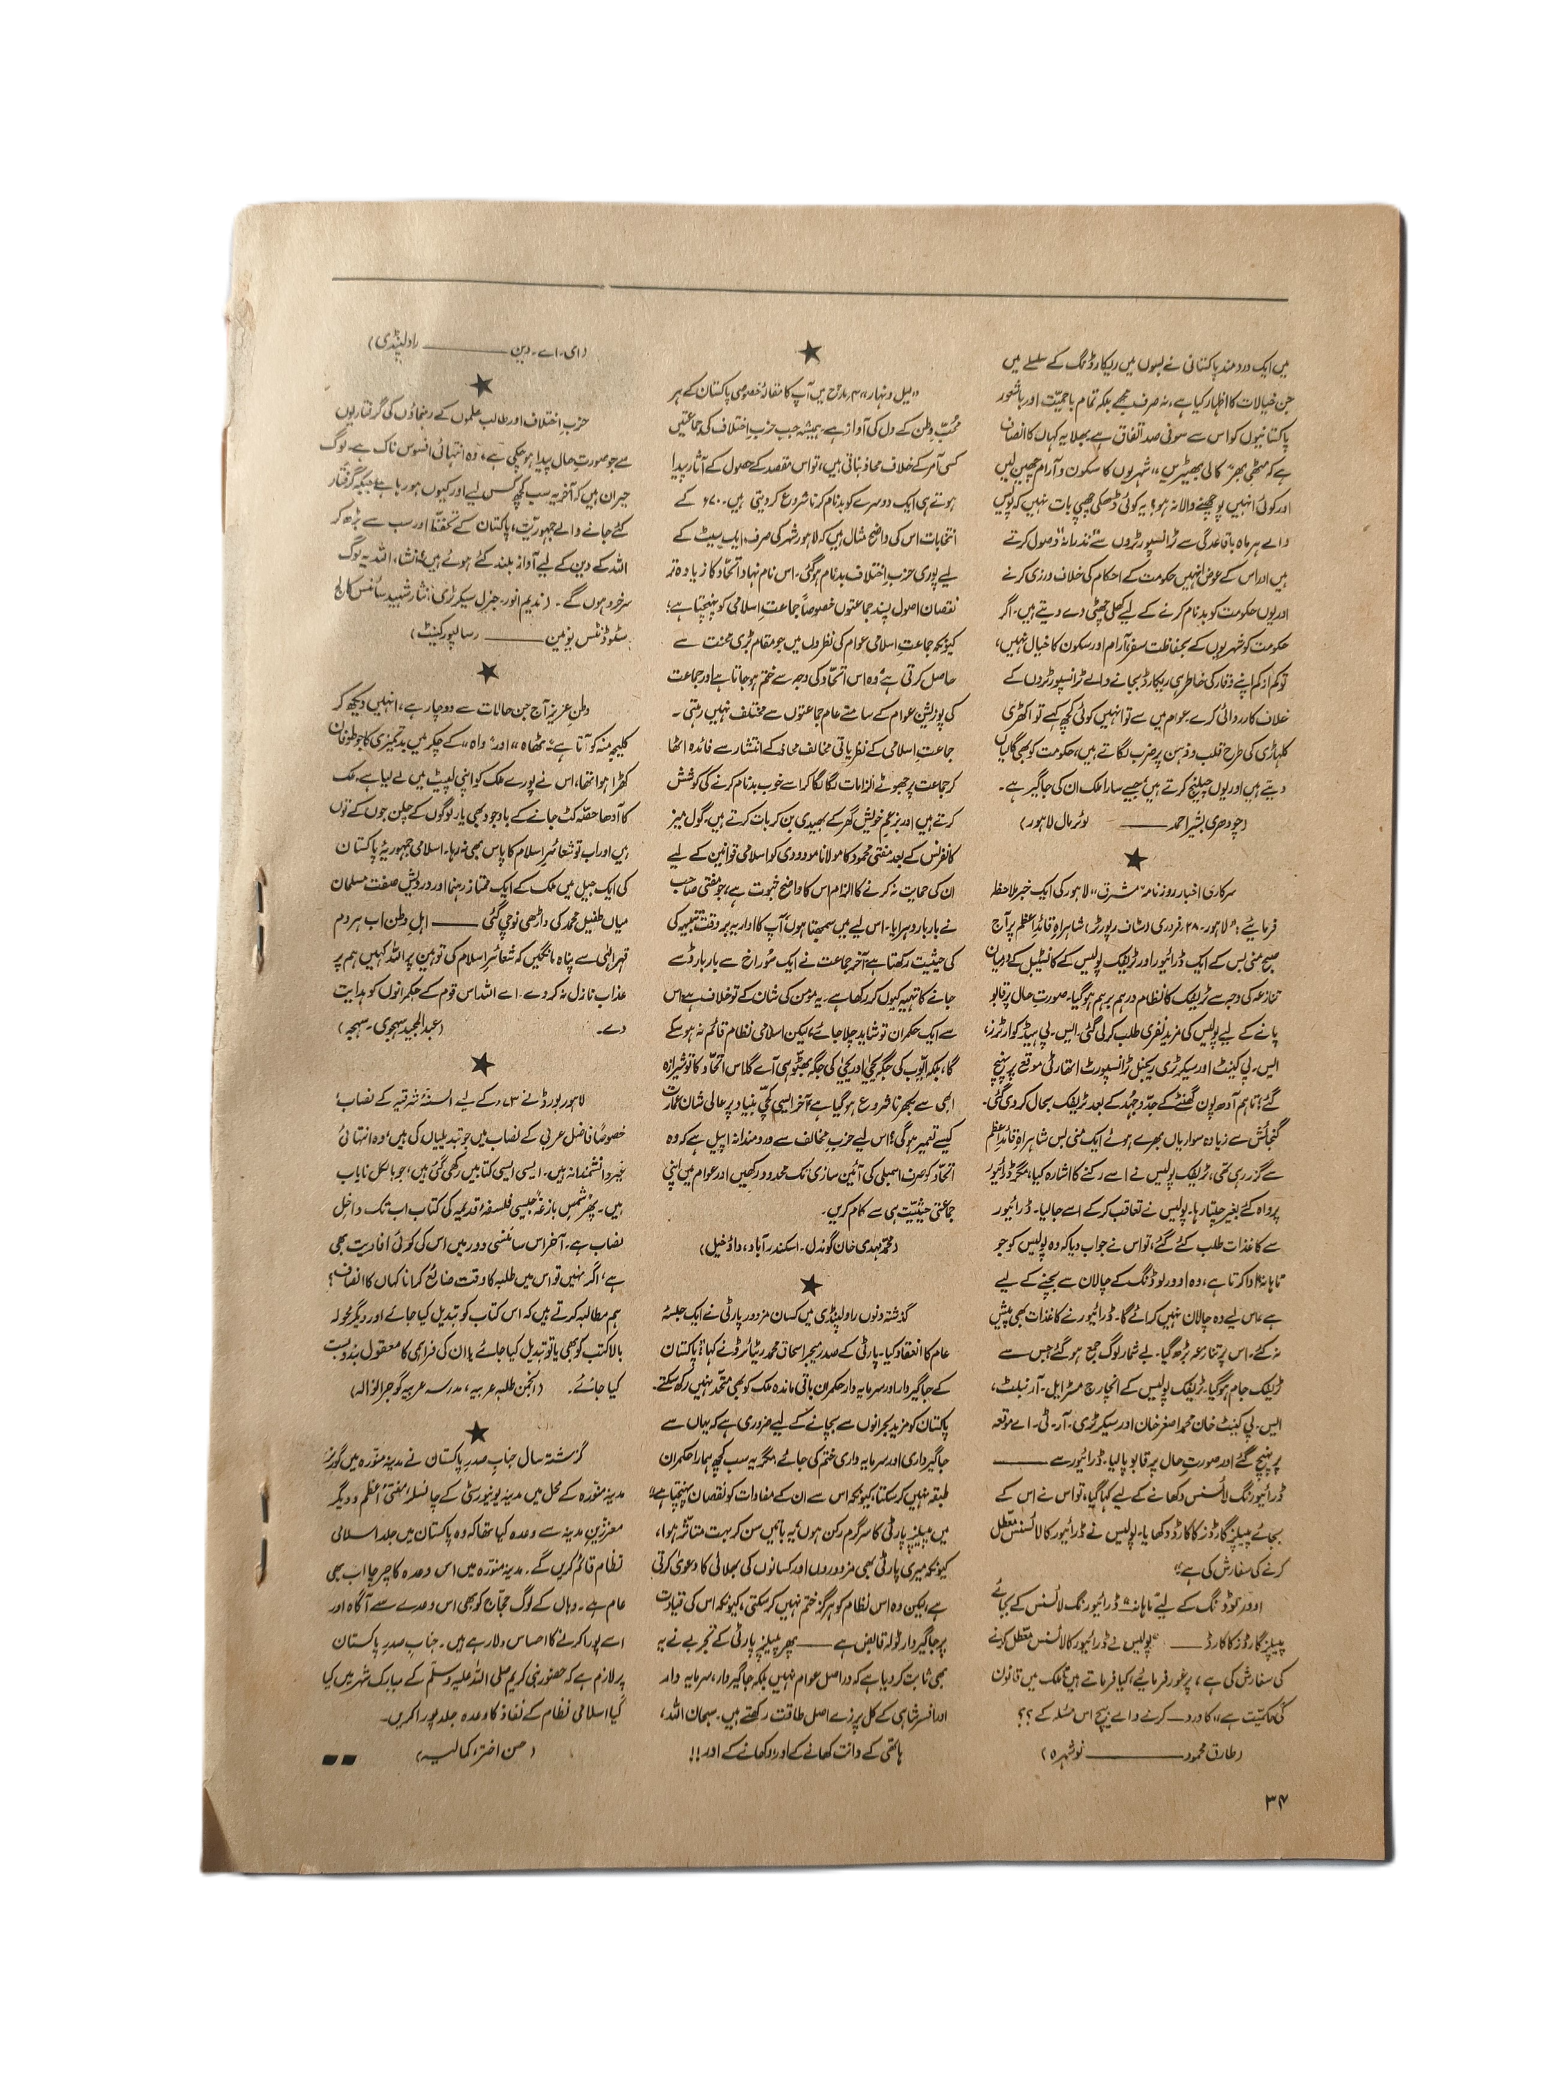 میں ایک دردمند پاکستانی نے بسوں میں ریکارڈنگ کے سلسلے میں
جن خیالات کا اظہار کیا ہے، نہ صرف مجھے بلکہ تمام باحمیّت اور باشعور
پاکستانیوں کو اس سے سو فی صد اتفاق ہے۔ بھلا یہ کہاں کا انصاف
ہے کہ مٹھی بھر "کالی بھیڑیں" شہریوں کا سکون و آرام چھین لیں
اور کوئی انہیں پوچھنے والا نہ ہو؟ یہ کوئی ڈھکی چھپی بات نہیں کہ پولیس
والے ہر ماہ باقاعدگی سے ٹرانسپورٹروں سے "نذرانہ" وصول کرتے
ہیں اور اس کے عوض انہیں حکومت کے احکام کی خلاف ورزی کرنے
اور یوں حکومت کو بدنام کرنے کے لیے کھلی چھٹی دے دیتے ہیں۔ اگر
حکومت کو شہریوں کے بحفاظت سفر، آرام اور سکون کا خیال نہیں،
تو کم از کم اپنے وقار کی خاطر ہی ریکارڈ بجانے والے ٹرانسپورٹروں کے
خلاف کارروائی کرے۔ عوام میں سے تو انہیں کوئی کچھ کہے تو اکھڑی
کلہاڑی کی طرح قلب و ذہن پر ضرب لگاتے ہیں، حکومت کو بھی گالیاں
دیتے ہیں اور یوں چیلنج کرتے ہیں جیسے سارا ملک ان کی جاگیر ہے۔
(چودھری بشیر احمد ——— لوئر مال لاہور)
★
سرکاری اخبار روزنامہ "مشرق" لاہور کی ایک خبر ملاحظہ
فرمائیے: "لاہور۔ ۲۸ فروری (سٹاف رپورٹر) شاہراہِ قائدِ اعظم پر آج
صبح منی بس کے ایک ڈرائیور اور ٹریفک پولیس کے کانسٹیبل کے درمیان
تنازعہ کی وجہ سے ٹریفک کا نظام درہم برہم ہو گیا۔ صورتِ حال پر قابو
پانے کے لیے پولیس کی مزید نفری طلب کر لی گئی۔ ایس۔ پی ہیڈ کوارٹرز،
ایس۔ پی کینٹ اور سیکرٹری ریجنل ٹرانسپورٹ اتھارٹی موقع پر پہنچ
گئے؛ تاہم آدھ پون گھنٹے کے جدّ و جُہد کے بعد ٹریفک بحال کر دی گئی۔
گنجائش سے زیادہ سواریاں بھرے ہوئے ایک منی بس شاہراہِ قائدِ اعظم
سے گزر رہی تھی، ٹریفک پولیس نے اسے رکنے کا اشارہ کیا، مگر ڈرائیور
پرواہ کئے بغیر چلتا رہا۔ پولیس نے تعاقب کر کے اسے جا لیا۔ ڈرائیور
سے کاغذات طلب کئے گئے، تو اس نے جواب دیا کہ وہ پولیس کو جو
"ماہانہ" ادا کرتا ہے، وہ اوورلوڈنگ کے چالان سے بچنے کے لیے
ہے، اس لیے وہ چالان نہیں کرائے گا۔ ڈرائیور نے کاغذات بھی پیش
نہ کئے۔ اس پر تنازعہ بڑھ گیا۔ بے شمار لوگ جمع ہو گئے جس سے
ٹریفک جام ہو گیا۔ ٹریفک پولیس کے انچارج مسٹر ایل۔ آر نبلٹ،
ایس۔ پی کینٹ خان محمد اصغر خان اور سیکرٹری۔ آر۔ ٹی۔ اے موقعہ
پر پہنچ گئے اور صورتِ حال پر قابو پا لیا۔ ڈرائیور سے ———
ڈرائیورنگ لائسنس دکھانے کے لیے کہا گیا، تو اس نے اس کے
بجائے پیپلز گارڈز کا کارڈ دکھایا۔ پولیس نے ڈرائیور کا لائسنس معطّل
کرنے کی سفارش کی ہے۔"
اوورلوڈنگ کے لیے "ماہانہ" ڈرائیورنگ لائسنس کے بجائے
پیپلز گارڈز کا کارڈ —— "پولیس نے ڈرائیور کا لائسنس معطل کرنے
کی سفارش کی ہے"، پر غور فرمائیے، کیا فرماتے ہیں "ملک میں قانون
کی حاکمیّت ہے" کا ورد کرنے والے بیچ اس مسئلہ کے ؟؟
(طارق محمود ——— نوشہرہ)
۳۴
★
"لیل و نہار" ۴ مارچ میں آپ کا مقالۂ خصوصی پاکستان کے ہر
محبِّ وطن کے دل کی آواز ہے۔ ہمیشہ جب حزبِ اختلاف کی جماعتیں
کسی آمر کے خلاف محاذ بناتی ہیں، تو اس مقصد کے حصول کے آثار پیدا
ہوتے ہی ایک دوسرے کو بدنام کرنا شروع کر دیتی ہیں۔ ۷۰ء کے
انتخابات اس کی واضح مثال ہیں کہ لاہور شہر کی صرف ایک سیٹ کے
لیے پوری حزبِ اختلاف بدنام ہو گئی۔ اس نام نہاد اتحاد کا زیادہ تر
نقصان اصول پسند جماعتوں خصوصاً جماعتِ اسلامی کو پہنچتا ہے؛
کیونکہ جماعتِ اسلامی عوام کی نظروں میں جو مقام بڑی محنت سے
حاصل کرتی ہے، وہ اس اتحاد کی وجہ سے ختم ہو جاتا ہے اور جماعت
کی پوزیشن عوام کے سامنے عام جماعتوں سے مختلف نہیں رہتی۔
جماعتِ اسلامی کے نظریاتی مخالف محاذ کے انتشار سے فائدہ اٹھا
کر جماعت پر جھوٹے الزامات لگا لگا کر اسے خوب بدنام کرنے کی کوشش
کرتے ہیں اور بزعمِ خویش گھر کے بھیدی بن کر بات کرتے ہیں۔ گول میز
کانفرنس کے بعد مفتی محمود کا مولانا مودودی کو اسلامی قوانین کے لیے
ان کی حمایت نہ کرنے کا الزام اس کا واضح ثبوت ہے، جو مفتی صاحب
نے بار بار دہرایا۔ اس لیے میں سمجھتا ہوں، آپ کا اداریہ بروقت تنبیہہ کی
کی حیثیت رکھتا ہے، آخر جماعت نے ایک سُوراخ سے بار بار ڈسے
جانے کا تہیہ کیوں کر رکھا ہے۔ یہ مومن کی شان کے تو خلاف ہے، اس
سے ایک حکمران تو شاید چلا جائے، لیکن اسلامی نظام قائم نہ ہو سکے
گا، بلکہ ایّوب کی جگہ یحییٰ اور یحییٰ کی جگہ بھٹو ہی آئے گا۔ اس اتحاد کا تو شیرازہ
ابھی سے بکھرنا شروع ہو گیا ہے، آخر ایسی کچّی بنیاد پر عالی شان عمارت
کیسے تعمیر ہو گی؟ اس لیے حزبِ مخالف سے دردمندانہ اپیل ہے کہ وہ
اتحاد کو صرف اسمبلی کی آئین سازی تک محدود رکھیں اور عوام میں اپنی
جماعتی حیثیّت ہی سے کام کریں۔
(محمّد مہدی خان گوندل۔ اسکندر آباد، داؤدخیل)
★
گذشتہ دنوں راولپنڈی میں کسان مزدور پارٹی نے ایک جلسۂ
عام کا انعقاد کیا۔ پارٹی کے صدر میجر اسحاق محمد ریٹائرڈ نے کہا: "پاکستان
کے جاگیردار اور سرمایہ دار حکمران باقی ماندہ ملک کو بھی متّحد نہیں رکھ سکتے۔
پاکستان کو مزید بحرانوں سے بچانے کے لیے ضروری ہے کہ یہاں سے
جاگیرداری اور سرمایہ داری ختم کی جائے، مگر یہ سب کچھ ہمارا حکمران
طبقہ نہیں کر سکتا، کیونکہ اس سے ان کے مفادات کو نقصان پہنچتا ہے"
میں پیپلز پارٹی کا سرگرم رکن ہوں، یہ باتیں سن کر بہت متاثر ہوا،
کیونکہ میری پارٹی بھی مزدوروں اور کسانوں کی بھلائی کا دعویٰ کرتی
ہے، لیکن وہ اس نظام کو ہرگز ختم نہیں کر سکتی، کیونکہ اس کی قیادت
پر جاگیردار ٹولہ قابض ہے —— پھر پیپلز پارٹی کے تجربے نے یہ
بھی ثابت کر دیا ہے کہ دراصل عوام نہیں بلکہ جاگیردار، سرمایہ دار
اور افسر شاہی کے کل پرزے اصل طاقت رکھتے ہیں۔ سبحان اللہ،
ہاتھی کے دانت کھانے کے اور، دکھانے کے اور!!
(ای۔ اے۔ دین ——— راولپنڈی)
★
حزبِ اختلاف اور طالب علموں کے رہنماؤں کی گرفتاریوں
سے جو صورتِ حال پیدا ہو چکی ہے، وہ انتہائی افسوس ناک ہے۔ لوگ
حیران ہیں کہ آخر یہ سب کچھ کس لیے اور کیوں ہو رہا ہے، جبکہ گرفتار
کئے جانے والے جمہوریّت، پاکستان کے تحفظ اور سب سے بڑھ کر
اللہ کے دین کے لیے آواز بلند کئے ہوئے ہیں۔ انشاء اللہ یہ لوگ
سرخرو ہوں گے۔ (ندیم انور۔ جنرل سیکرٹری، نثار شہید سائنس کالج
سٹوڈنٹس یونین ——— رسالپور کینٹ)
★
وطنِ عزیز آج جن حالات سے دوچار ہے، انہیں دیکھ کر
کلیجہ منہ کو آتا ہے۔ "ٹھاہ" اور "واہ" کے چکر میں بدتمیزی کا جو طوفان
کھڑا ہوا تھا، اس نے پورے ملک کو اپنی لپیٹ میں لے لیا ہے۔ ملک
کا آدھا حصّہ کٹ جانے کے باوجود بھی یار لوگوں کے چلن جوں کے توں
ہیں اور اب تو شعائرِ اسلام کا پاس بھی نہ رہا۔ اسلامی جمہوریۂ پاکستان
کی ایک جیل میں ملک کے ایک ممتاز رہنما اور درویش صفت مسلمان
میاں طفیل محمد کی داڑھی نوچی گئی —— اہلِ وطن اب ہر دم
قہرِ الٰہی سے پناہ مانگیں کہ شعائرِ اسلام کی توہین پر اللہ کہیں ہم پر
عذاب نازل نہ کر دے۔ اے اللہ اس قوم کے حکمرانوں کو ہدایت
دے۔ (عبدالمجید سہجوی۔ سہجہ)
★
لاہور بورڈ نے ۷۳ء کے لیے السنۂ شرقیہ کے نصاب،
خصوصاً فاضل عربی کے نصاب میں جو تبدیلیاں کی ہیں، وہ انتہائی
غیر دانشمندانہ ہیں۔ ایسی ایسی کتابیں رکھی گئی ہیں، جو بالکل نایاب
ہیں۔ پھر "شمس بازغہ" جیسی فلسفۂ قدیمہ کی کتاب اب تک داخلِ
نصاب ہے۔ آخر اس سائنسی دور میں اس کی کوئی افادیت بھی
ہے، اگر نہیں تو اس میں طلبہ کا وقت ضائع کرانا کہاں کا انصاف؟
ہم مطالبہ کرتے ہیں کہ اس کتاب کو تبدیل کیا جائے اور دیگر محولہ
بالا کتب کو بھی یا تو تبدیل کیا جائے یا ان کی فراہمی کا معقول بندوبست
کیا جائے۔ (انجمن طلبہ عربیہ، مدرسہ عربیہ گوجرانوالہ)
★
گزشتہ سال جناب صدرِ پاکستان نے مدینہ منوّرہ میں گورنر
مدینہ منوّرہ کے محل میں مدینہ یونیورسٹی کے چانسلر، مفتیٔ اعظم و دیگر
معززینِ مدینہ سے وعدہ کیا تھا کہ وہ پاکستان میں جلد اسلامی
نظام قائم کریں گے۔ مدینہ منورہ میں اس وعدہ کا چرچا اب بھی
عام ہے۔ وہاں کے لوگ حجاج کو بھی اس وعدے سے آگاہ اور
اسے پورا کرنے کا احساس دلا رہے ہیں۔ جنابِ صدرِ پاکستان
پر لازم ہے کہ حضور نبی کریم صلی اللہ علیہ وسلّم کے مبارک شہر میں کیا
گیا اسلامی نظام کے نفاذ کا وعدہ جلد پورا کریں۔
(حسن اختر، کمالیہ)